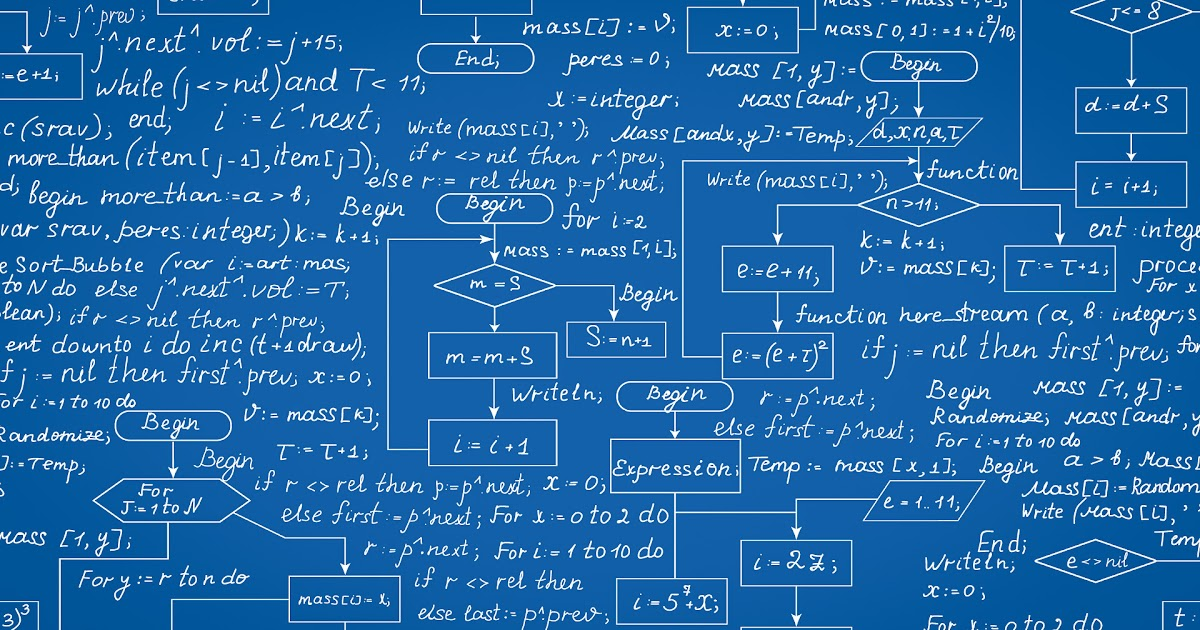 j:=j^.prev;
j^.next^.vol:=j+15;
:=e+1;
while (j<>nil)and T<11;
c(srav); end; i:=i^.next;
more_than(item[j-1],item[j]);
d; begin more_than:=a>b;
var srav, peres:integer;) k:=k+1;
e Sort_Bubble (var i:=art:mas;
to N do else j^.next^.vol:=T;
lean); if r <> nil then r^.prev;
ent downto i do inc(t+1draw);
f j:=nil then first^.prev; x:=0;
For i:=1 to 10 do
Begin
v:=mass[k];
Randomize;
Begin
T:=T+1;
]:=Temp;
For
J:=1 to N
mass [1,y];
For y:=r to n do
mass[i]:=x;
3)³
End;
mass[i]:=v;
peres:=0;
x:=integer;
Write(mass[i],' ');
if r <> nil then r^.prev;
else r:= rel then p:=p^.next;
Begin
Begin
for i:=2
mass:=mass[1,i];
m=S
Begin
S:=n+1
m=m+S
Writeln;
i:=i+1
if r <> rel then p:=p^.next; x:=0;
else first:=p^.next; For x:=0 to 2 do
r:=p^.next; For i:=1 to 10 do
if r <> rel then
else last:=p^.prev;
x:=0;
mass[0,1]:=1+i²/10;
mass [1,y]:=
Begin
mass[andr,y];
Mass[andx,y]:=Temp;
d,x,n,a,τ
function
Write(mass[i],' ');
n>11;
k:=k+1;
v:=mass[k];
e:=e+11;
T:=T+1;
e:=(e+τ)²
function here_stream (a, b: integer;s
if j:=nil then first^.prev; for
Begin
r:=p^.next;
else first:=p^.next;
Expression;
Temp:=mass [x,1]; Begin a>b; Mass[
e=1..11;
i:=2Z;
i:=5⁷+X;
J<=8
d:=d+S
i=i+1;
ent:intege
proce
For x
Begin mass [1,y]:=
Randomize; mass[andr,y
For i:=1 to 10 do
Mass[i]:=Random
Write (mass[i],'
End;
Temp
Writeln;
e<>nil
x:=0;
For x:=0 to 2 do
t: